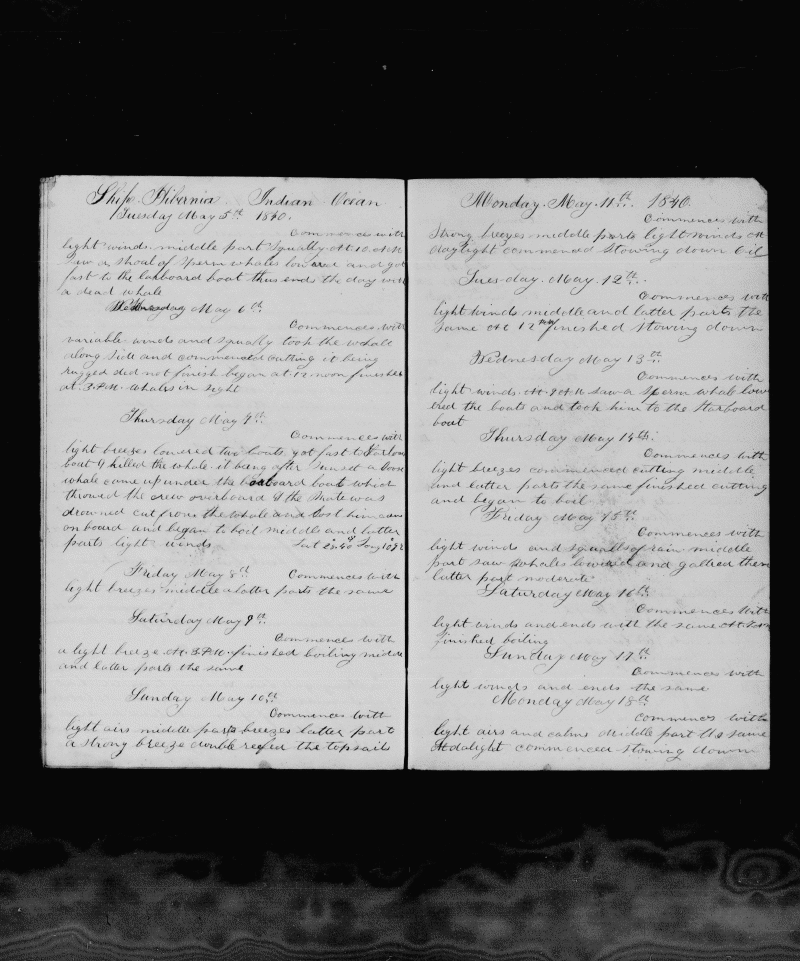 Ship Hibernia Indian Ocean
Tuesday May 5th 1840.
Commences with
light winds. middle part squally At 10 AM
saw a shoal of sperm whales lowered and got
fast to the larboard boat thus ends the day with
a dead whale
Wednesday May 6th
Commences with
variable winds and squally took the whale
along side and commenced cutting it being
rugged did not finish began at 12 noon finished
at 3 P.M. whales in sight
Thursday May 7th
Commences with
light breezes lowered two boats got fast to
boat & killed the whale it being after sunset a loose
whale came up under the boat which
throwed the crew overboard & the mate was
drowned cut from the whale and lost him came
on board and began to boil middle and latter
parts light winds Lat Long
Friday May 8th Commences with
light breezes middle & latter parts the same
Saturday May 9th
Commences with
a light breeze At 3 P.M. finished boiling middle
and latter parts the same
Sunday May 10th
Commences with
light airs middle parts breezes latter part
a strong breeze double reefed the topsails
Monday. May. 11th. 1840.
Commences with
Strong breezes middle parts light winds At
daylight commenced stowing down Oil
Tuesday. May. 12th.
Commences with
light winds middle and latter parts the
same At 12 finished stowing down
Wednesday May 13th
Commences with
light winds. At 9 AM saw a sperm whale low
ered the boats and took him to the starboard
boat
Thursday May 14th.
Commences with
light breezes commenced cutting middle
and latter parts the same finished cutting
and began to boil
Friday May 15th
Commences with
light winds and squalls of rain middle
part saw whales lowered and gallied them
latter part moderate
Saturday May 16th
Commences with
light winds and ends with the same At
finished boiling
Sunday May 17th
Commences with
light winds and ends the same
Monday May 18th
Commences with
light airs and calms middle part the same
At dalight commenced stowing down